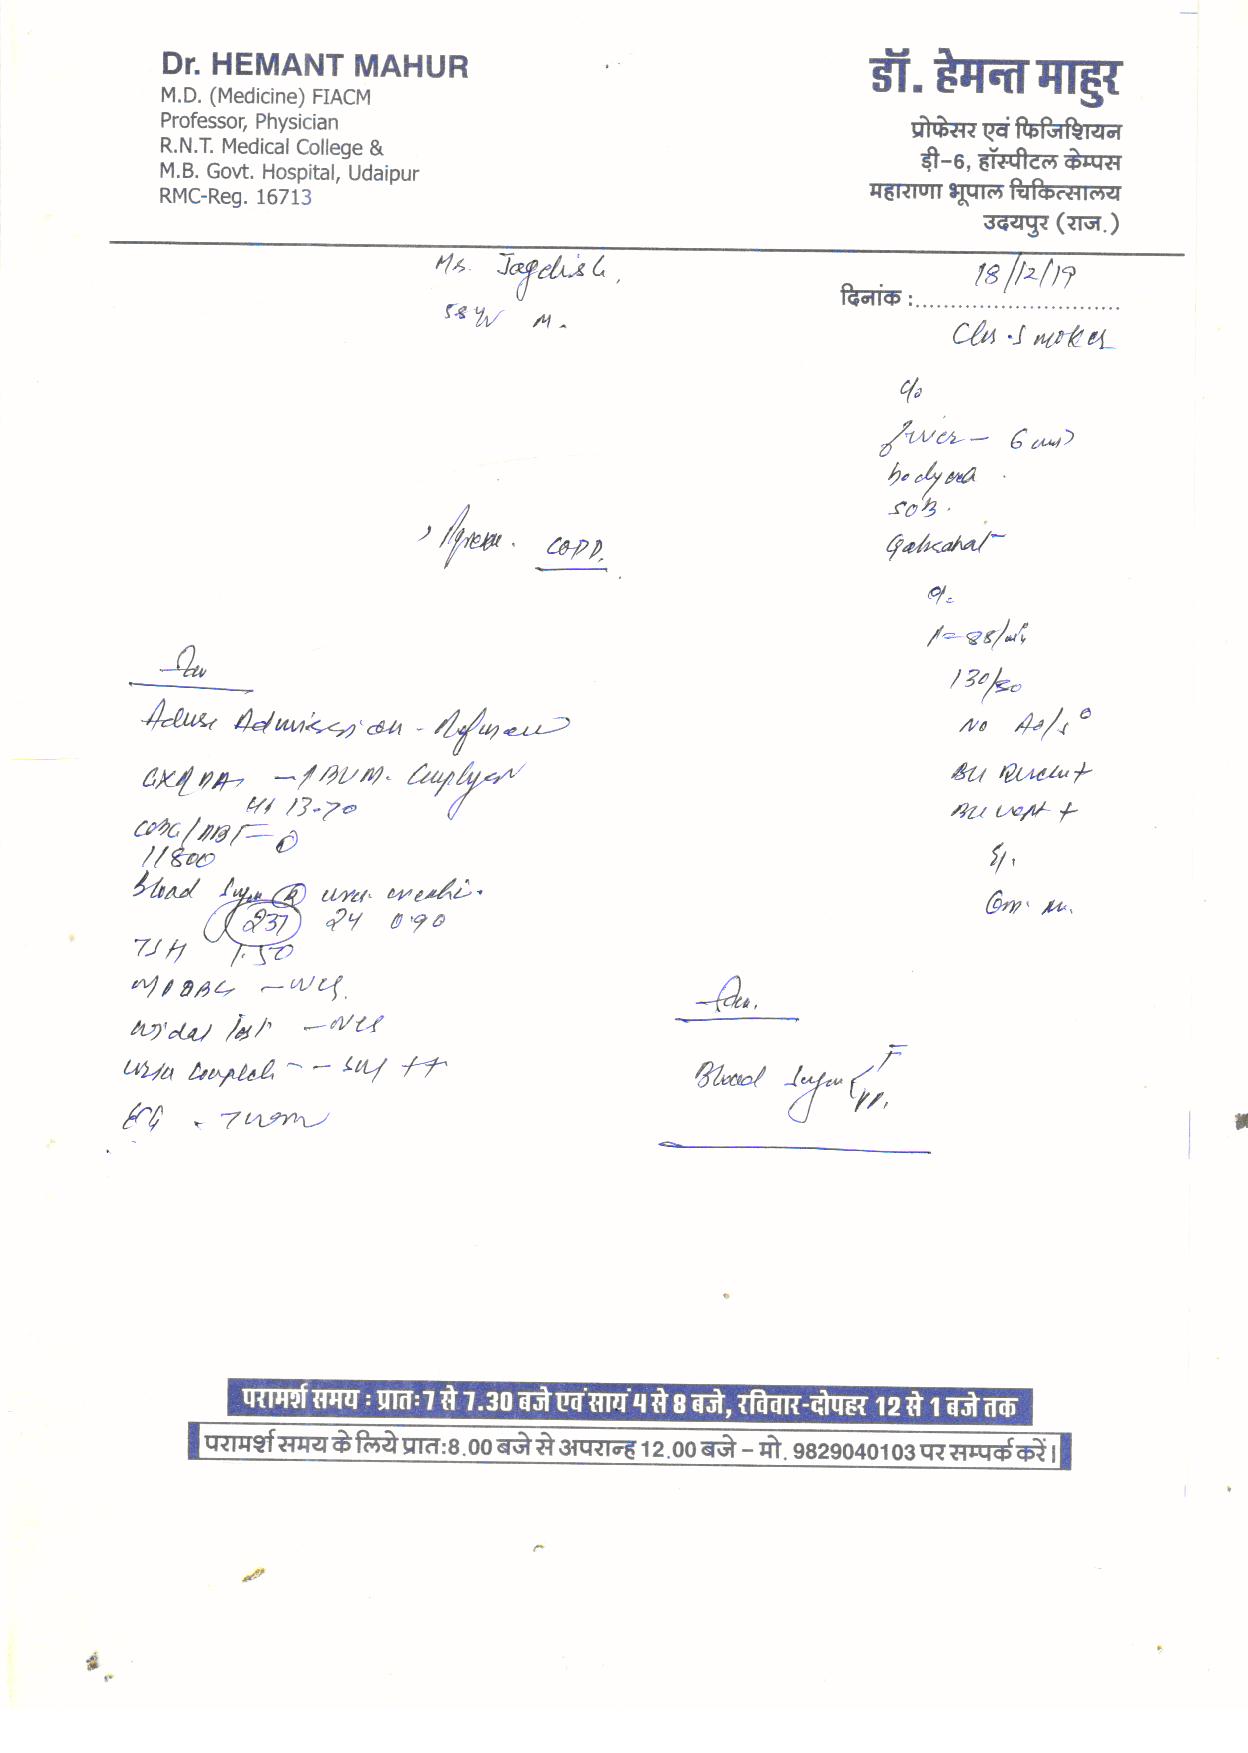 Dr. HEMANT MAHUR
M.D. (Medicine) FIACM
Professor, Physician
R.N.T. Medical College &
M.B. Govt. Hospital, Udaipur
RMC-Reg. 16713
डॉ. हेमन्त माहुर
प्रोफेसर एवं फिजिशियन
ड़ी-6, हॉस्पीटल केम्पस
महाराणा भूपाल चिकित्सालय
उदयपुर (राज.)
Jagdish
58 M.
दिनांक : 18/12/19
Chr. Smoker
c/o
fever -
bodyache
SOB.
Gabrahat
O/E
P = 88/min
130/80
No
S/.
COPD.
Adv
Advise Admission - Refused
CXR PA -
Hb 13.70
CBC/
11800
Blood Sugar (R) urea creatini.
237 24 0.90
TSH 1.50
- Neg.
Widal Test - Neg
Urine complete - Sug ++
ECG -
Adv.
Blood Sugar F
PP.
परामर्श समय : प्रातः7 से 7.30 बजे एवं सायं 4 से 8 बजे, रविवार-दोपहर 12 से 1 बजे तक
परामर्श समय के लिये प्रात:8.00 बजे से अपरान्ह 12.00 बजे – मो. 9829040103 पर सम्पर्क करें।